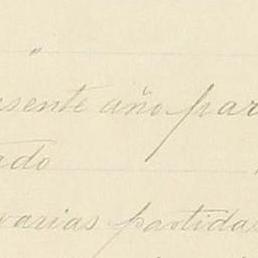 "
esente año par
ado "
varias partidas